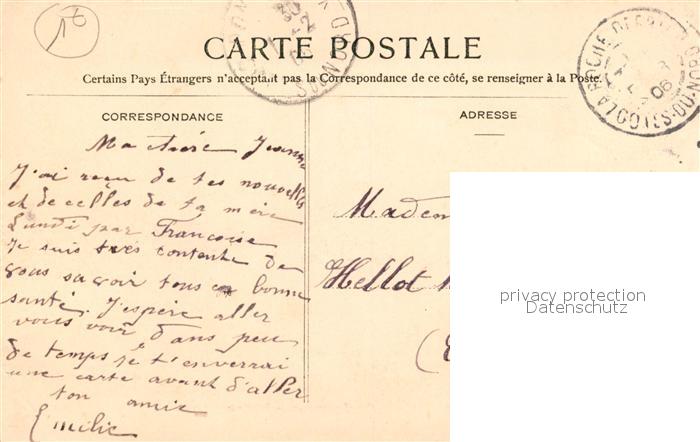 16
CARTE POSTALE
Certains Pays Étrangers n'acceptant pas la Correspondance de ce côté, se renseigner à la Poste.
CORRESPONDANCE
ADRESSE
Ma chère Jeanne
J'ai reçu de tes nouvelles
et de celles de ta mère
Lundi par Françoise
Je suis très contente de
vous savoir tous en bonne
santé. J'espère aller
vous voir d'ans peu
de temps je t'enverrai
une carte avant d'aller
ton amie
Emilie
Madem
Hellot
privacy protection
Datenschutz